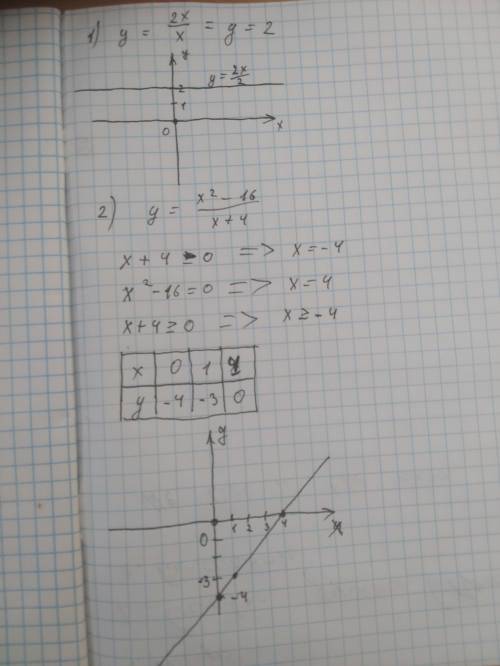 1) y = 2x/x = y = 2
y
y = 2x/2
2
1
0 x
2) y = x² - 16 / x + 4
x + 4 = 0 => x = -4
x² - 16 = 0 => x = 4
x + 4 ≥ 0 => x ≥ -4
x 0 1 4
y -4 -3 0
y
0 1 2 3 4 x
-3
-4